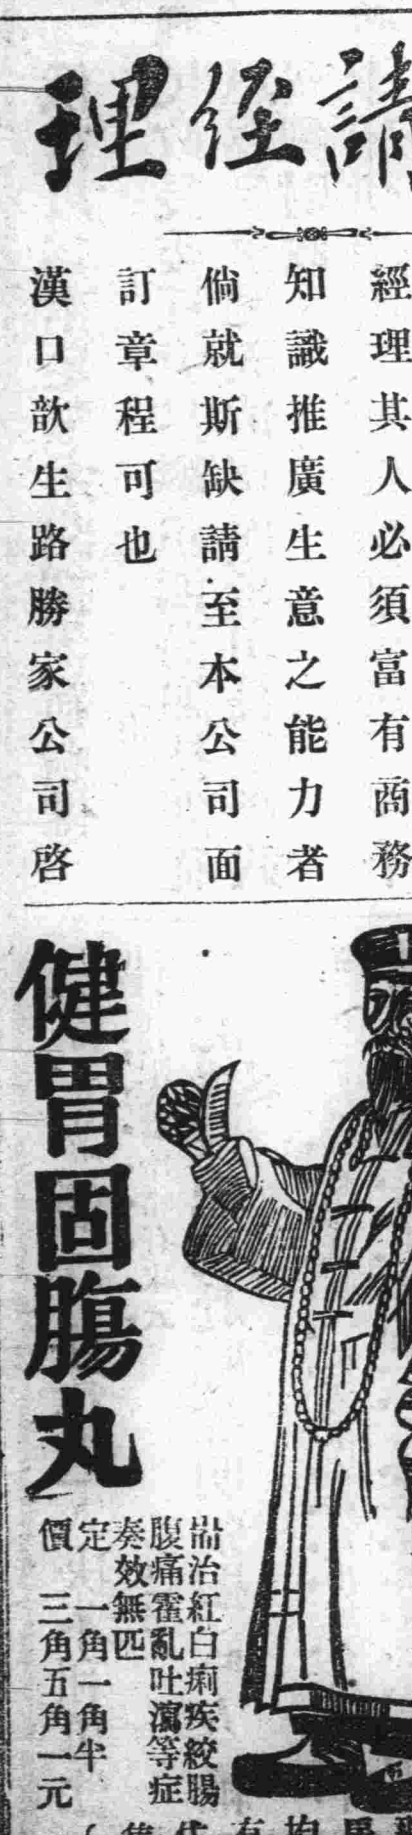 請經理
經理其人必須富有商務
知識推廣生意之能力者
倘就斯缺請至本公司面
訂章程可也
漢口歆生路勝家公司啓
健胃固腸丸
耑治紅白痢疾絞腸
腹痛霍亂吐瀉等症
奏效無匹
定 一角一角半
價 三角五角一元